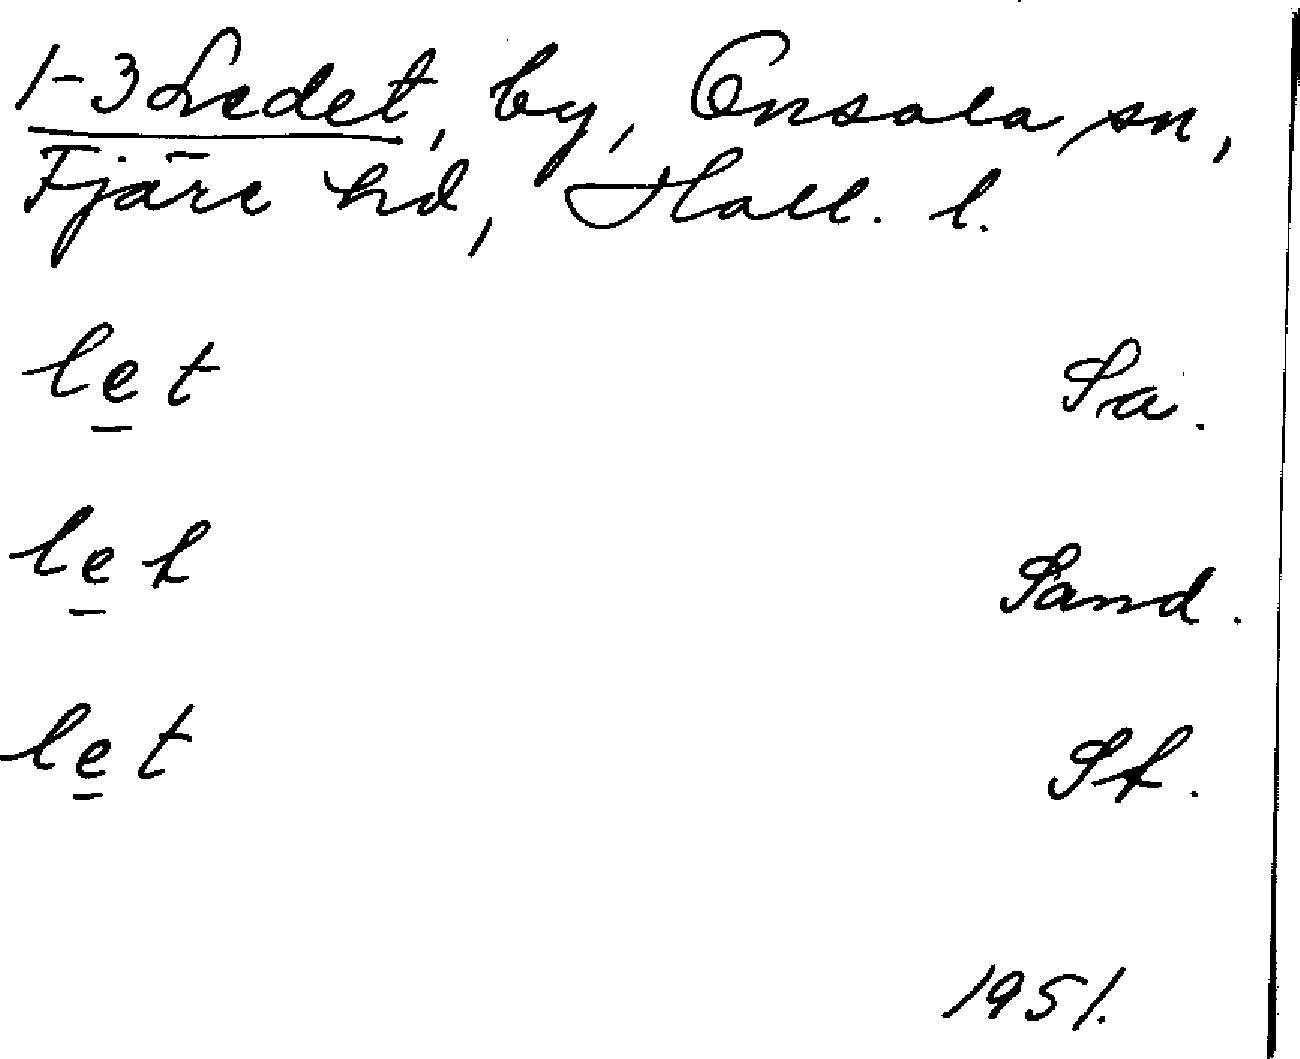 1-3 Ledet, by, Onsala sn,
Fjäre hd, Hall. l.
let Sä.
let Sand.
let Sf.
1951.